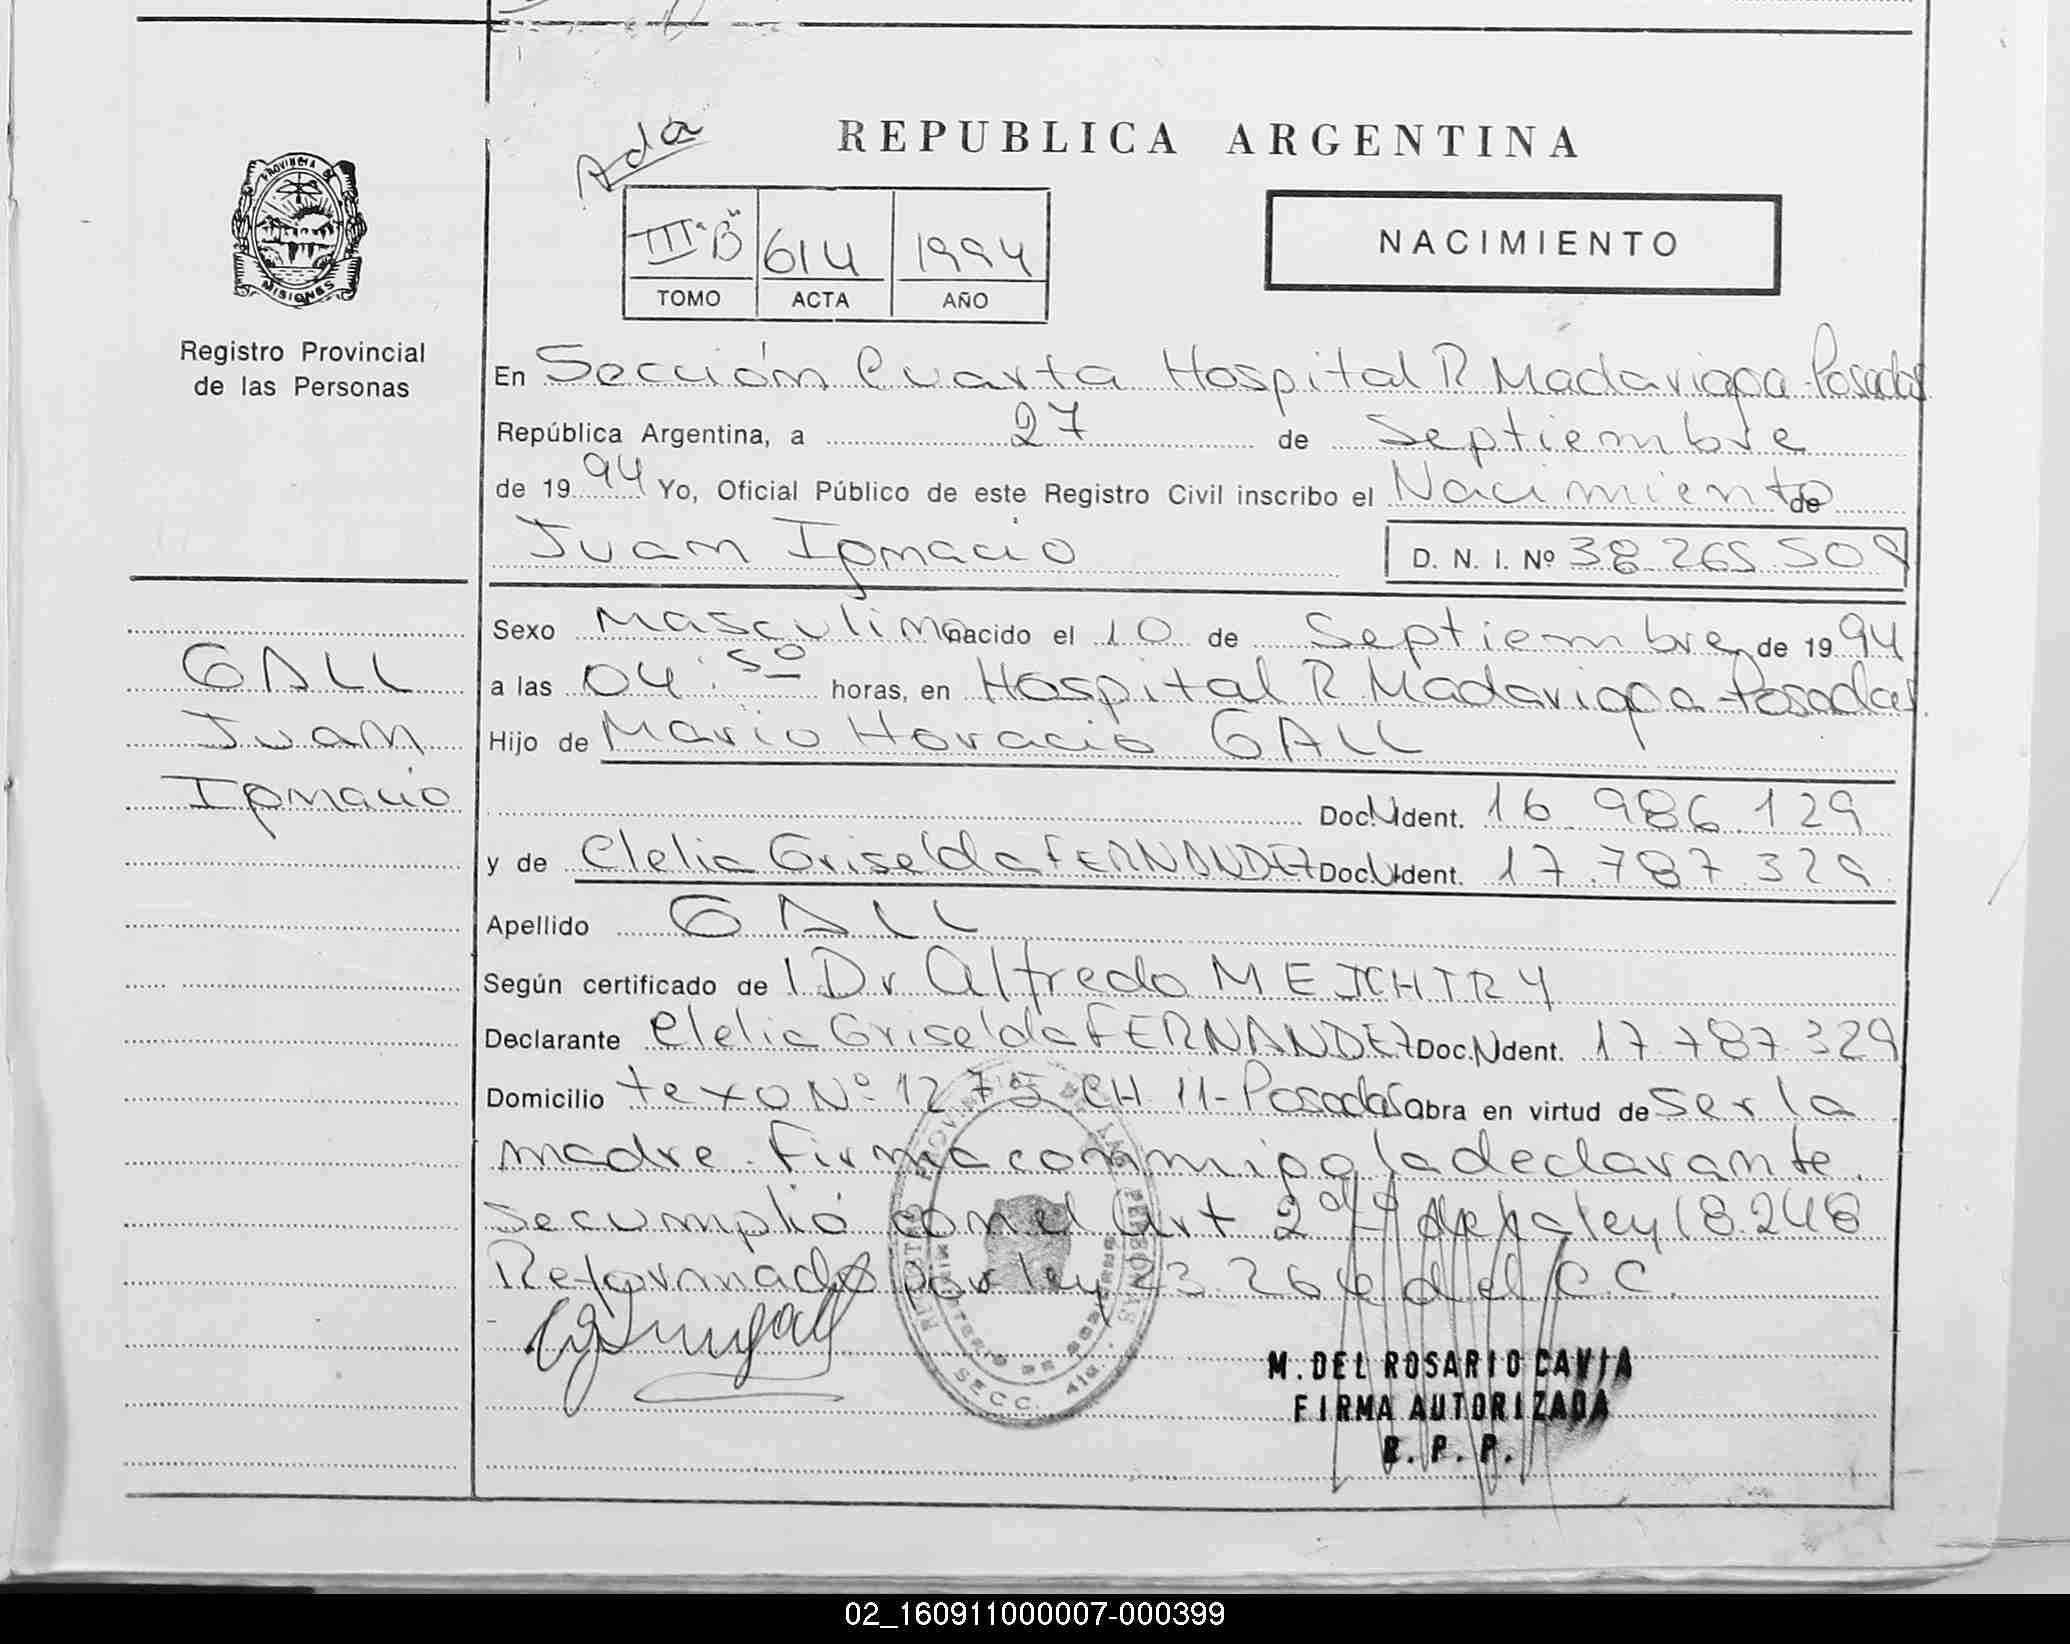 Ada
REPUBLICA ARGENTINA
III "B" 614 1994
TOMO ACTA AÑO
NACIMIENTO
PROVINCIA DE
MISIONES
Registro Provincial
de las Personas
En Sección Cuarta Hospital R Madariaga-Posadas
República Argentina, a 27 de Septiembre
de 1994 Yo, Oficial Público de este Registro Civil inscribo el Nacimiento de
Juan Ignacio D. N. I. Nº 38.265.509
Sexo Masculino nacido el 10 de Septiembre de 1994
a las 04:50 horas, en Hospital R Madariaga-Posadas
Hijo de Mario Horacio GALL
Doc. N Ident. 16.986.129
y de Clelia Griselda FERNANDEZ Doc. N Ident. 17.787.329
Apellido GALL
Según certificado de l Dr Alfredo MEJCHTRY
Declarante Clelia Griselda FERNANDEZ Doc. N Ident. 17.787.329
Domicilio texo Nº 1275 CH 11-Posadas Obra en virtud de ser la
madre. Firma conmigo la declarante.
Se cumplió con el Art 2do de la ley 18.248
Reformado por ley 23.264 del C.C.
GALL
Juan
Ignacio
REGISTRO PROVINCIAL DE LAS PERSONAS
MINISTERIO DE GOBIERNO
SECC. 4ta.
M. DEL ROSARIO CAVIA
FIRMA AUTORIZADA
R. P. P.
02_160911000007-000399